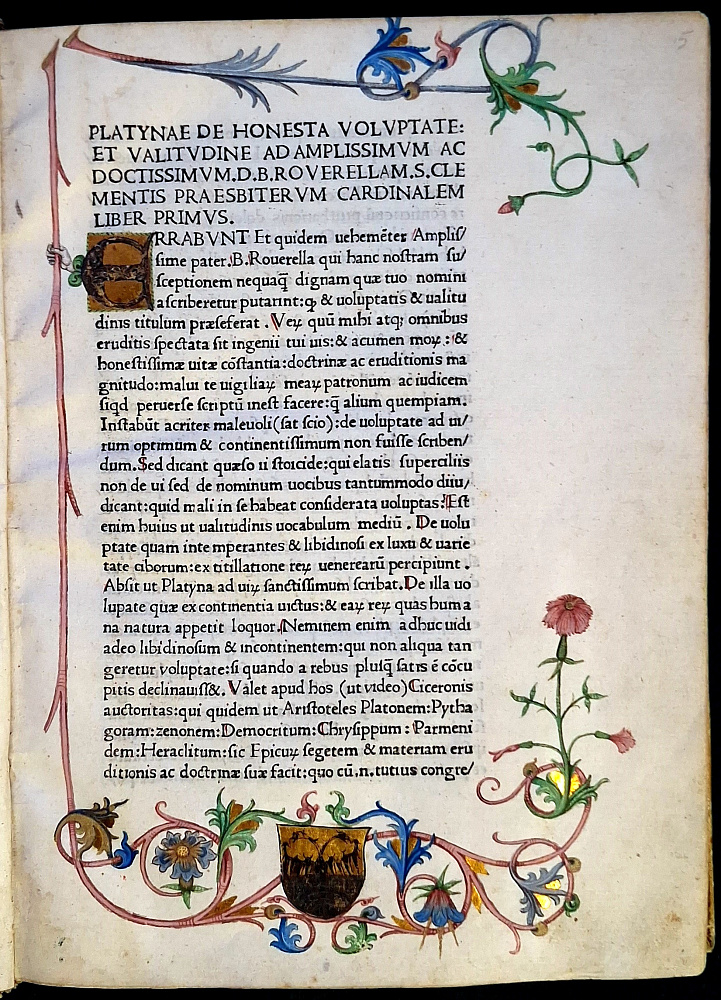 5
PLATYNAE DE HONESTA VOLVPTATE:
ET VALITVDINE AD AMPLISSIMVM AC
DOCTISSIMVM.D.B.ROVERELLAM.S.CLE
MENTIS PRAESBITERVM CARDINALEM
LIBER PRIMVS.
ERRABVNT Et quidem uehemēter Ampliſ/
ſime pater.B.Rouerella qui hanc noſtram ſu/
ſceptionem nequaq̄ dignam quæ tuo nomini
aſcriberetur putarint:ꝙ & uoluptatis & ualitu
dinis titulum præſeferat . Veꝝ quū mihi atqꝫ omnibus
eruditis ſpectata ſit ingenii tui uis:& acumen moꝝ : &
honeſtiſſimæ uitæ cōſtantia:doctrinæ ac eruditionis ma
gnitudo:malui te uigiliaꝝ meaꝝ patronum ac iudicem
ſiqd peruerſe ſcriptū ineſt facere:q̄ alium quempiam.
Inſtabūt acriter maleuoli(ſat ſcio):de uoluptate ad ui/
rum optimum & continentiſſimum non fuiſſe ſcriben/
dum.Sed dicant quæſo ii ſtoicide:qui elatis ſuperciliis
non de ui ſed de nominum uocibus tantummodo diiu/
dicant:quid mali in ſe habeat conſiderata uoluptas:Eſt
enim huius ut ualitudinis uocabulum mediū . De uolu
ptate quam intemperantes & libidinoſi ex luxu & uarie
tate ciborum:ex titillatione reꝝ uenerearū percipiunt .
Abſit ut Platyna ad uiꝝ ſanctiſſimum ſcribat.De illa uo
lupate quæ ex continentia uictus:& eaꝝ reꝝ quas huma
na natura appetit loquor.Neminem enim adhuc uidi
adeo libidinoſum & incontinentem:qui non aliqua tan
geretur voluptate:ſi quando a rebus pluſq̄ ſatis ē cōcu
pitis declinauiſſ&. Valet apud hos (ut video)Ciceronis
auctoritas:qui quidem ut Ariſtoteles Platonem:Pytha
goram:zenonem:Democritum:Chryſippum : Parmeni
dem:Heraclitum:ſic Epicuꝝ ſegetem & materiam eru
ditionis ac doctrinæ ſuæ facit:quo cū.n.tutius congre/